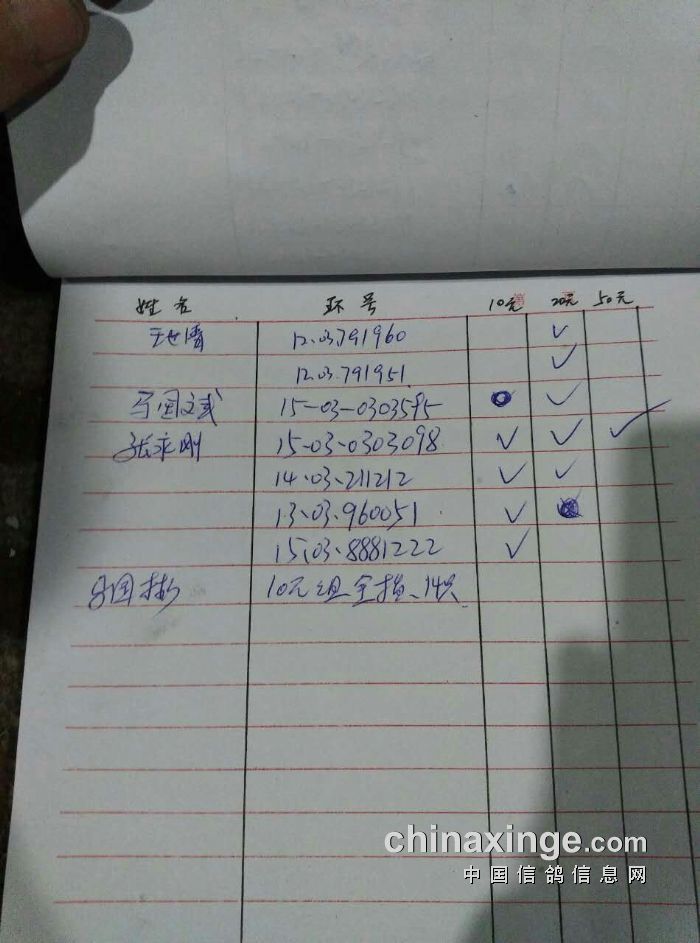 姓名 环号 10元 20元 50元
12.03.791960 ✓
12.03.791951 ✓
马国文武 15-03-0303595 ✓
张永刚 15-03-0303098 ✓ ✓ ✓
14.03.211212 ✓ ✓
13.03.960051 ✓
15.03.8881222 ✓
10元组全指
chinaxinge.com
中国信鸽信息网